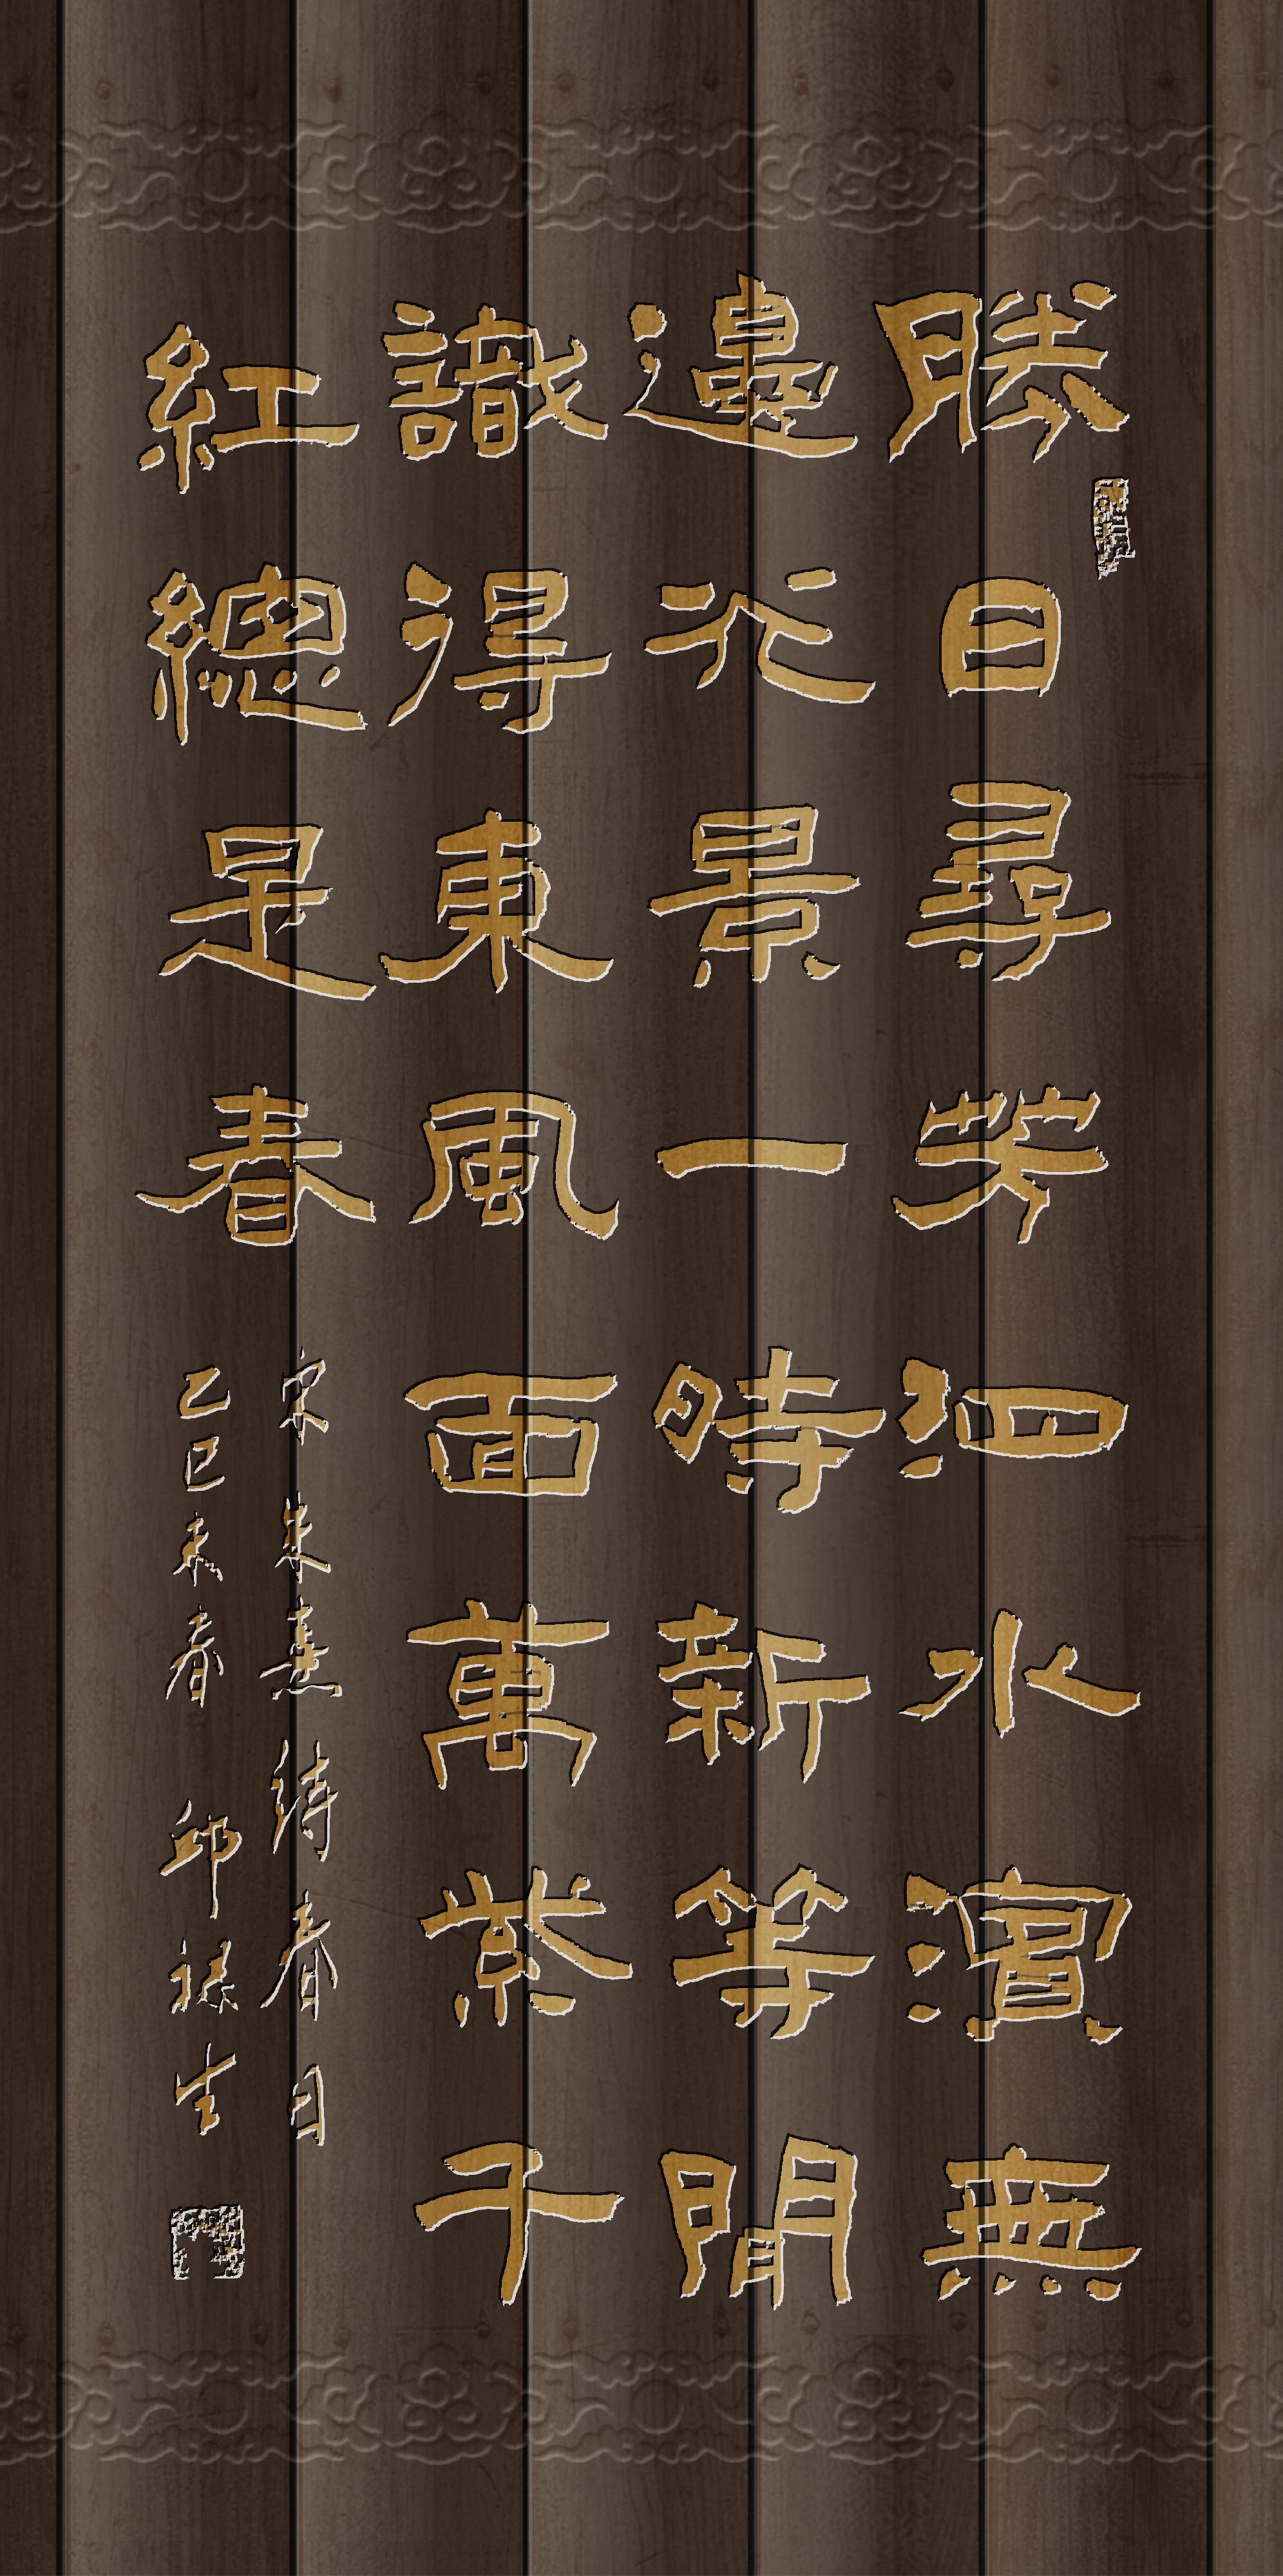 勝日尋芳泗水濱無
邊光景一時新等閒
識得東風面萬紫千
紅總是春
宋朱熹詩春日
乙巳末春 邱禄生